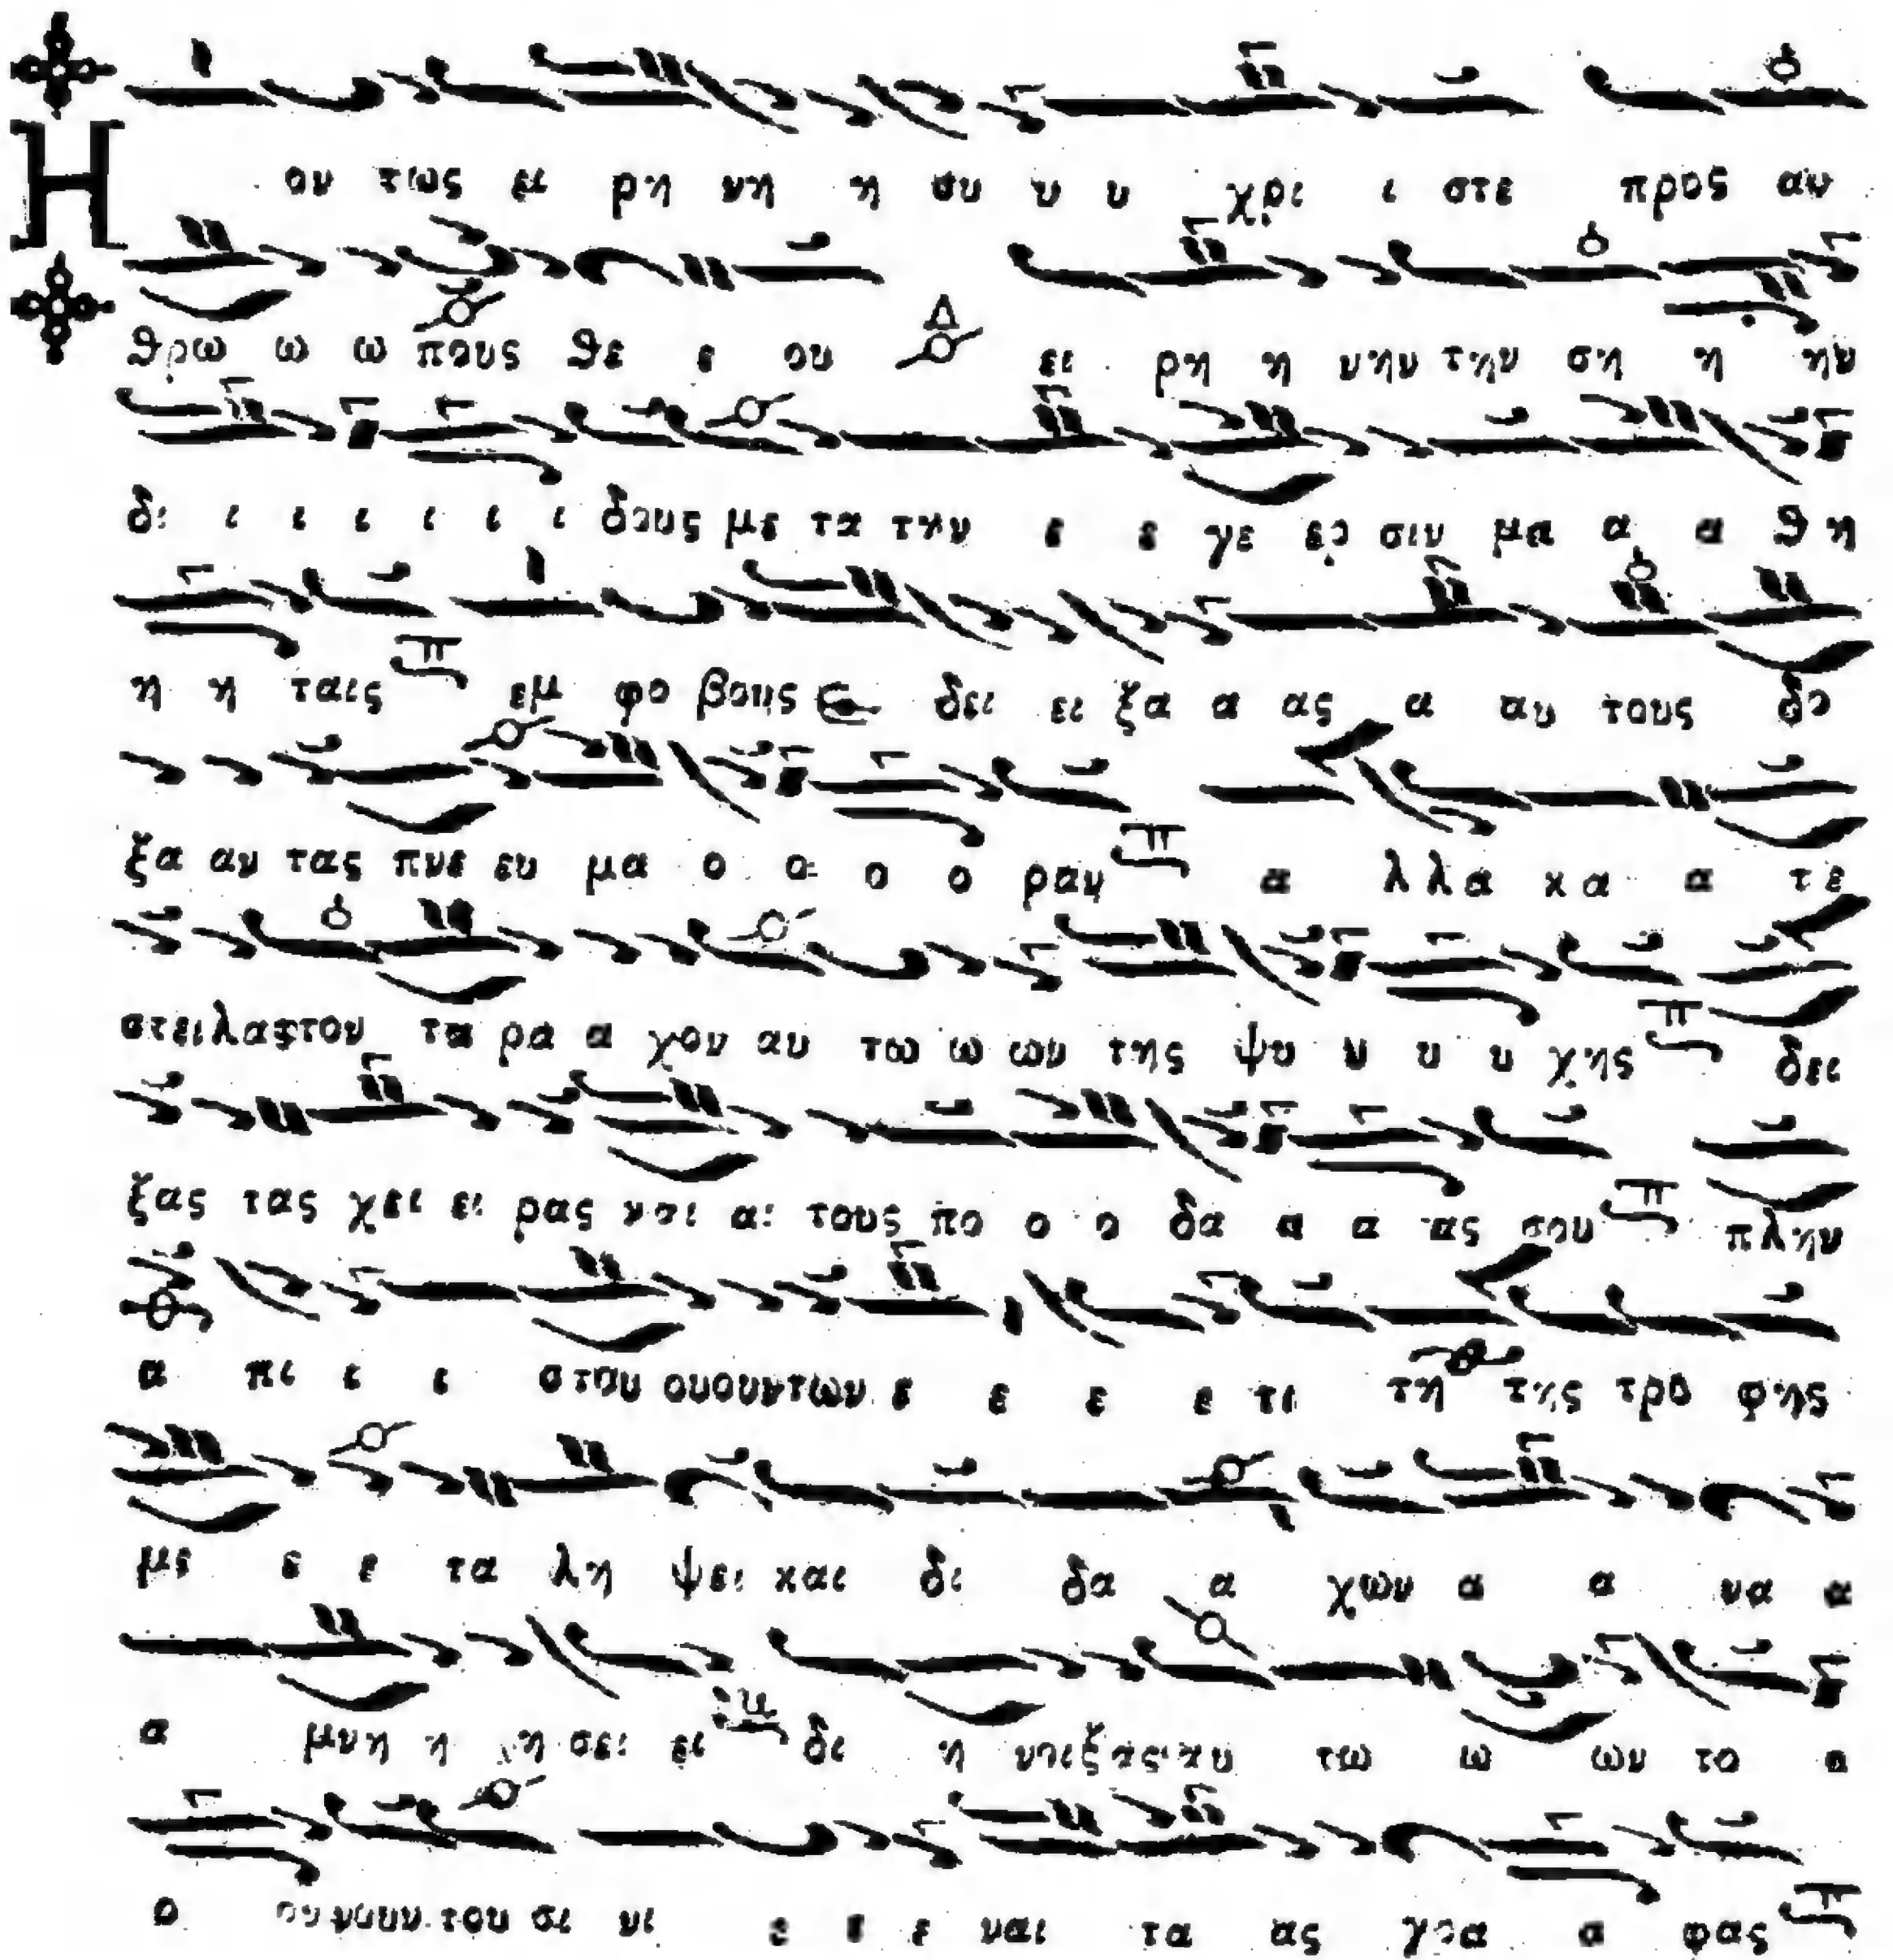 Η ον τως ει ρη νη η συ υ υ χρι ι στε προς αν
θρω ω ω πους θε ε ου Δ ει ρη η νην την ση η ην
δι ι ι ι ι ι ι δους με τα την ε ε γε ερ σιν μα α α θη
η η ταις π εμ φο βους δει ει ξα α ας α αυ τους δο
ξα αν τας πνε ευ μα ο ο ο ο ραν π α λλα κα α τε
στειλας τον τα ρα α χον αυ τω ω ων της ψυ υ υ υ χης π δει
ξας τας χει ει ρας και αι τους πο ο ο δα α α ας σου π πλην
α πι ι ι στου ουουντων ε ε ε ε τι τη της τρο φης
με ε ε τα λη ψει και δι δα α χων α α να α
α μνη η η σει ει δι η νοιξας αυ τω ω ων το ο
ο ου νουν του σι νι ε ε ε ναι τα ας γρα α φας π